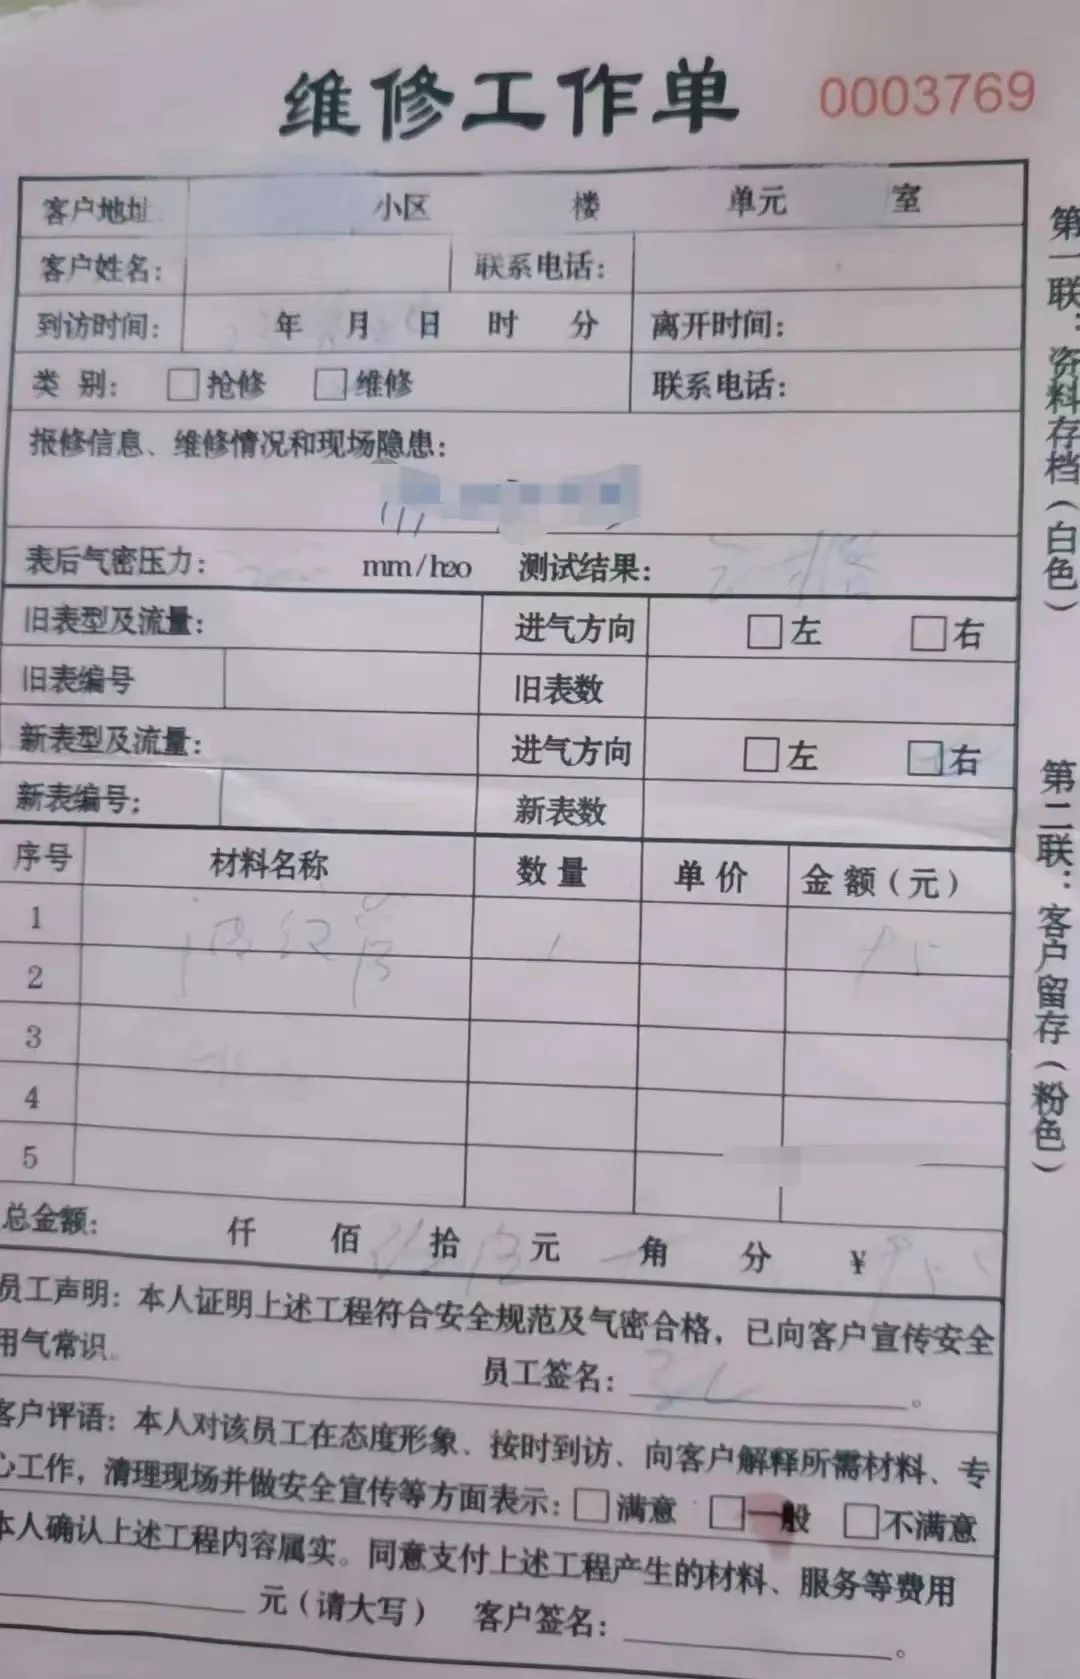 维修工作单 0003769
客户地址: 小区 楼 单元 室
客户姓名: 联系电话:
到访时间: 年 月 日 时 分 离开时间:
类 别: □抢修 □维修 联系电话:
报修信息、维修情况和现场隐患:
表后气密压力: mm/h2o 测试结果:
旧表型及流量: 进气方向 □左 □右
旧表编号 旧表数
新表型及流量: 进气方向 □左 □右
新表编号: 新表数
序号 材料名称 数量 单价 金额(元)
1
2
3
4
5
总金额: 仟 佰 拾 元 角 分 ¥
员工声明: 本人证明上述工程符合安全规范及气密合格, 已向客户宣传安全
用气常识。
员工签名: 。
客户评语: 本人对该员工在态度形象、按时到访、向客户解释所需材料、专
心工作, 清理现场并做安全宣传等方面表示: □满意 □一般 □不满意
本人确认上述工程内容属实。同意支付上述工程产生的材料、服务等费用
元(请大写) 客户签名: 。
第一联: 资料存档(白色)
第二联: 客户留存(粉色)